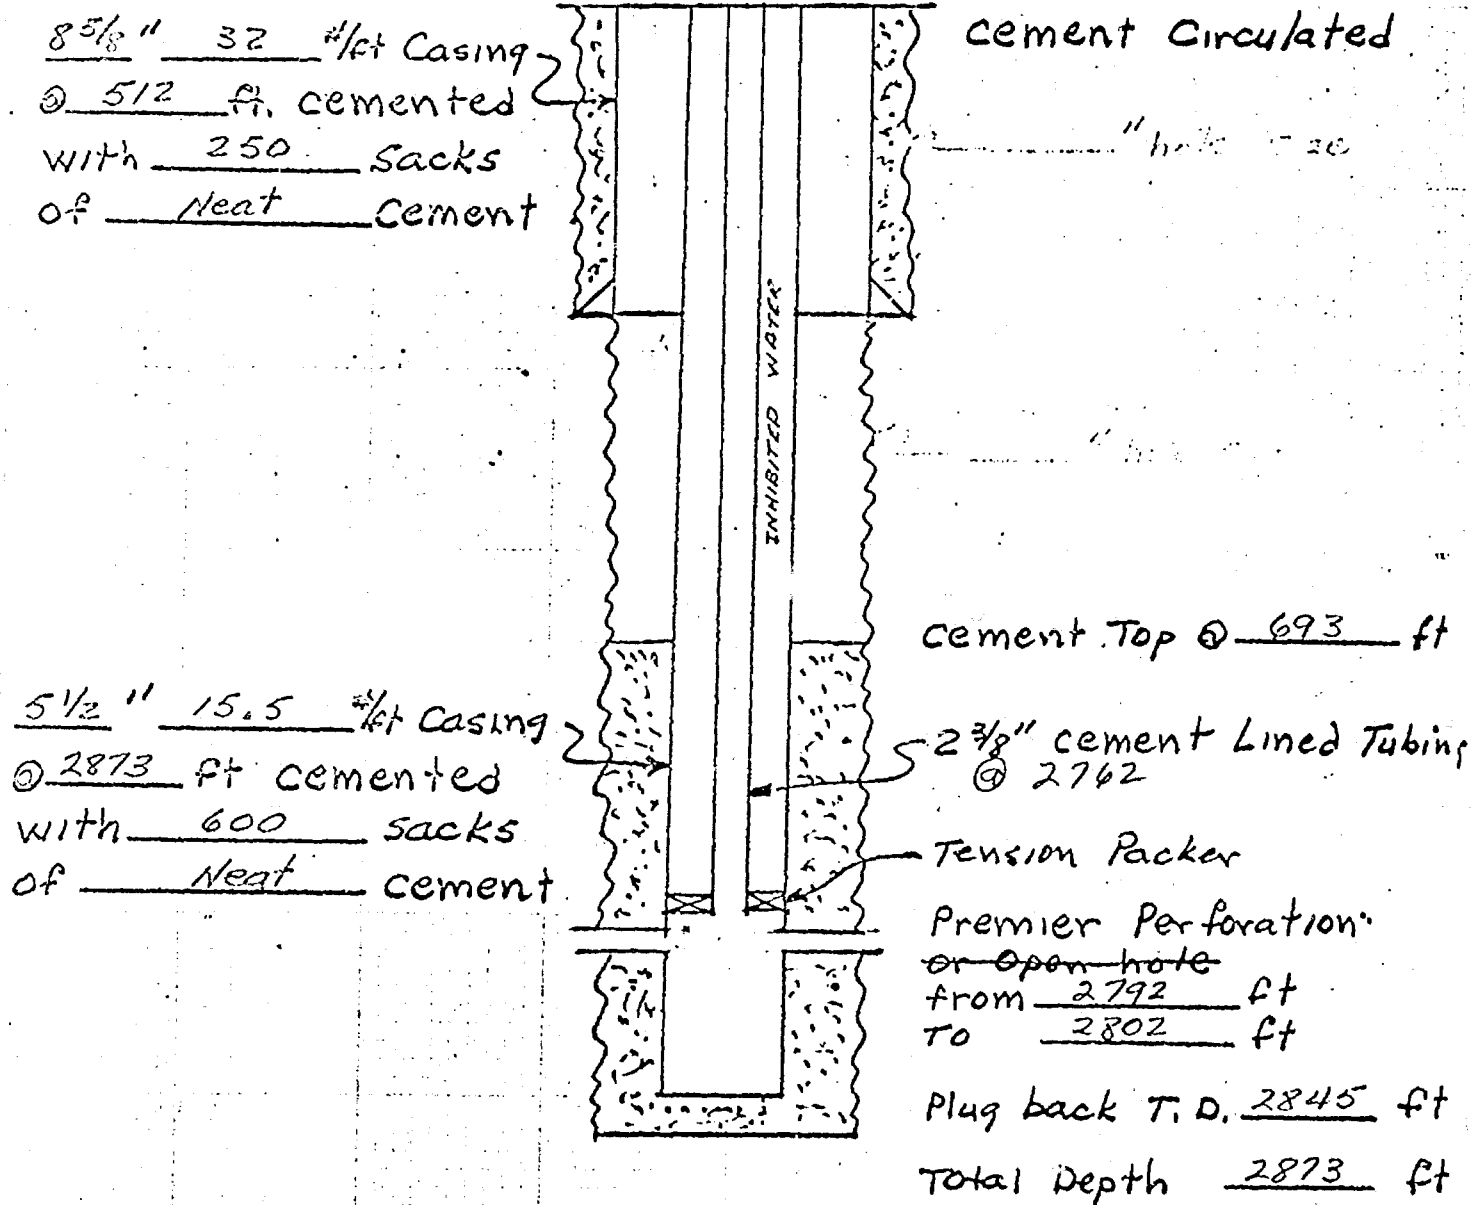 8 5/8 " 32 #/ft Casing
@ 512 ft. cemented
with 250 Sacks
of Neat Cement
cement Circulated
" hole
INHIBITED WATER
Cement Top @ 693 ft
5 1/2 " 15.5 #/ft Casing
@ 2873 ft cemented
with 600 sacks
of Neat cement
2 3/8" cement Lined Tubing
@ 2762
Tension Packer
Premier Perforation
or Open hole
from 2792 ft
To 2802 ft
Plug back T.D. 2845 ft
Total Depth 2873 ft